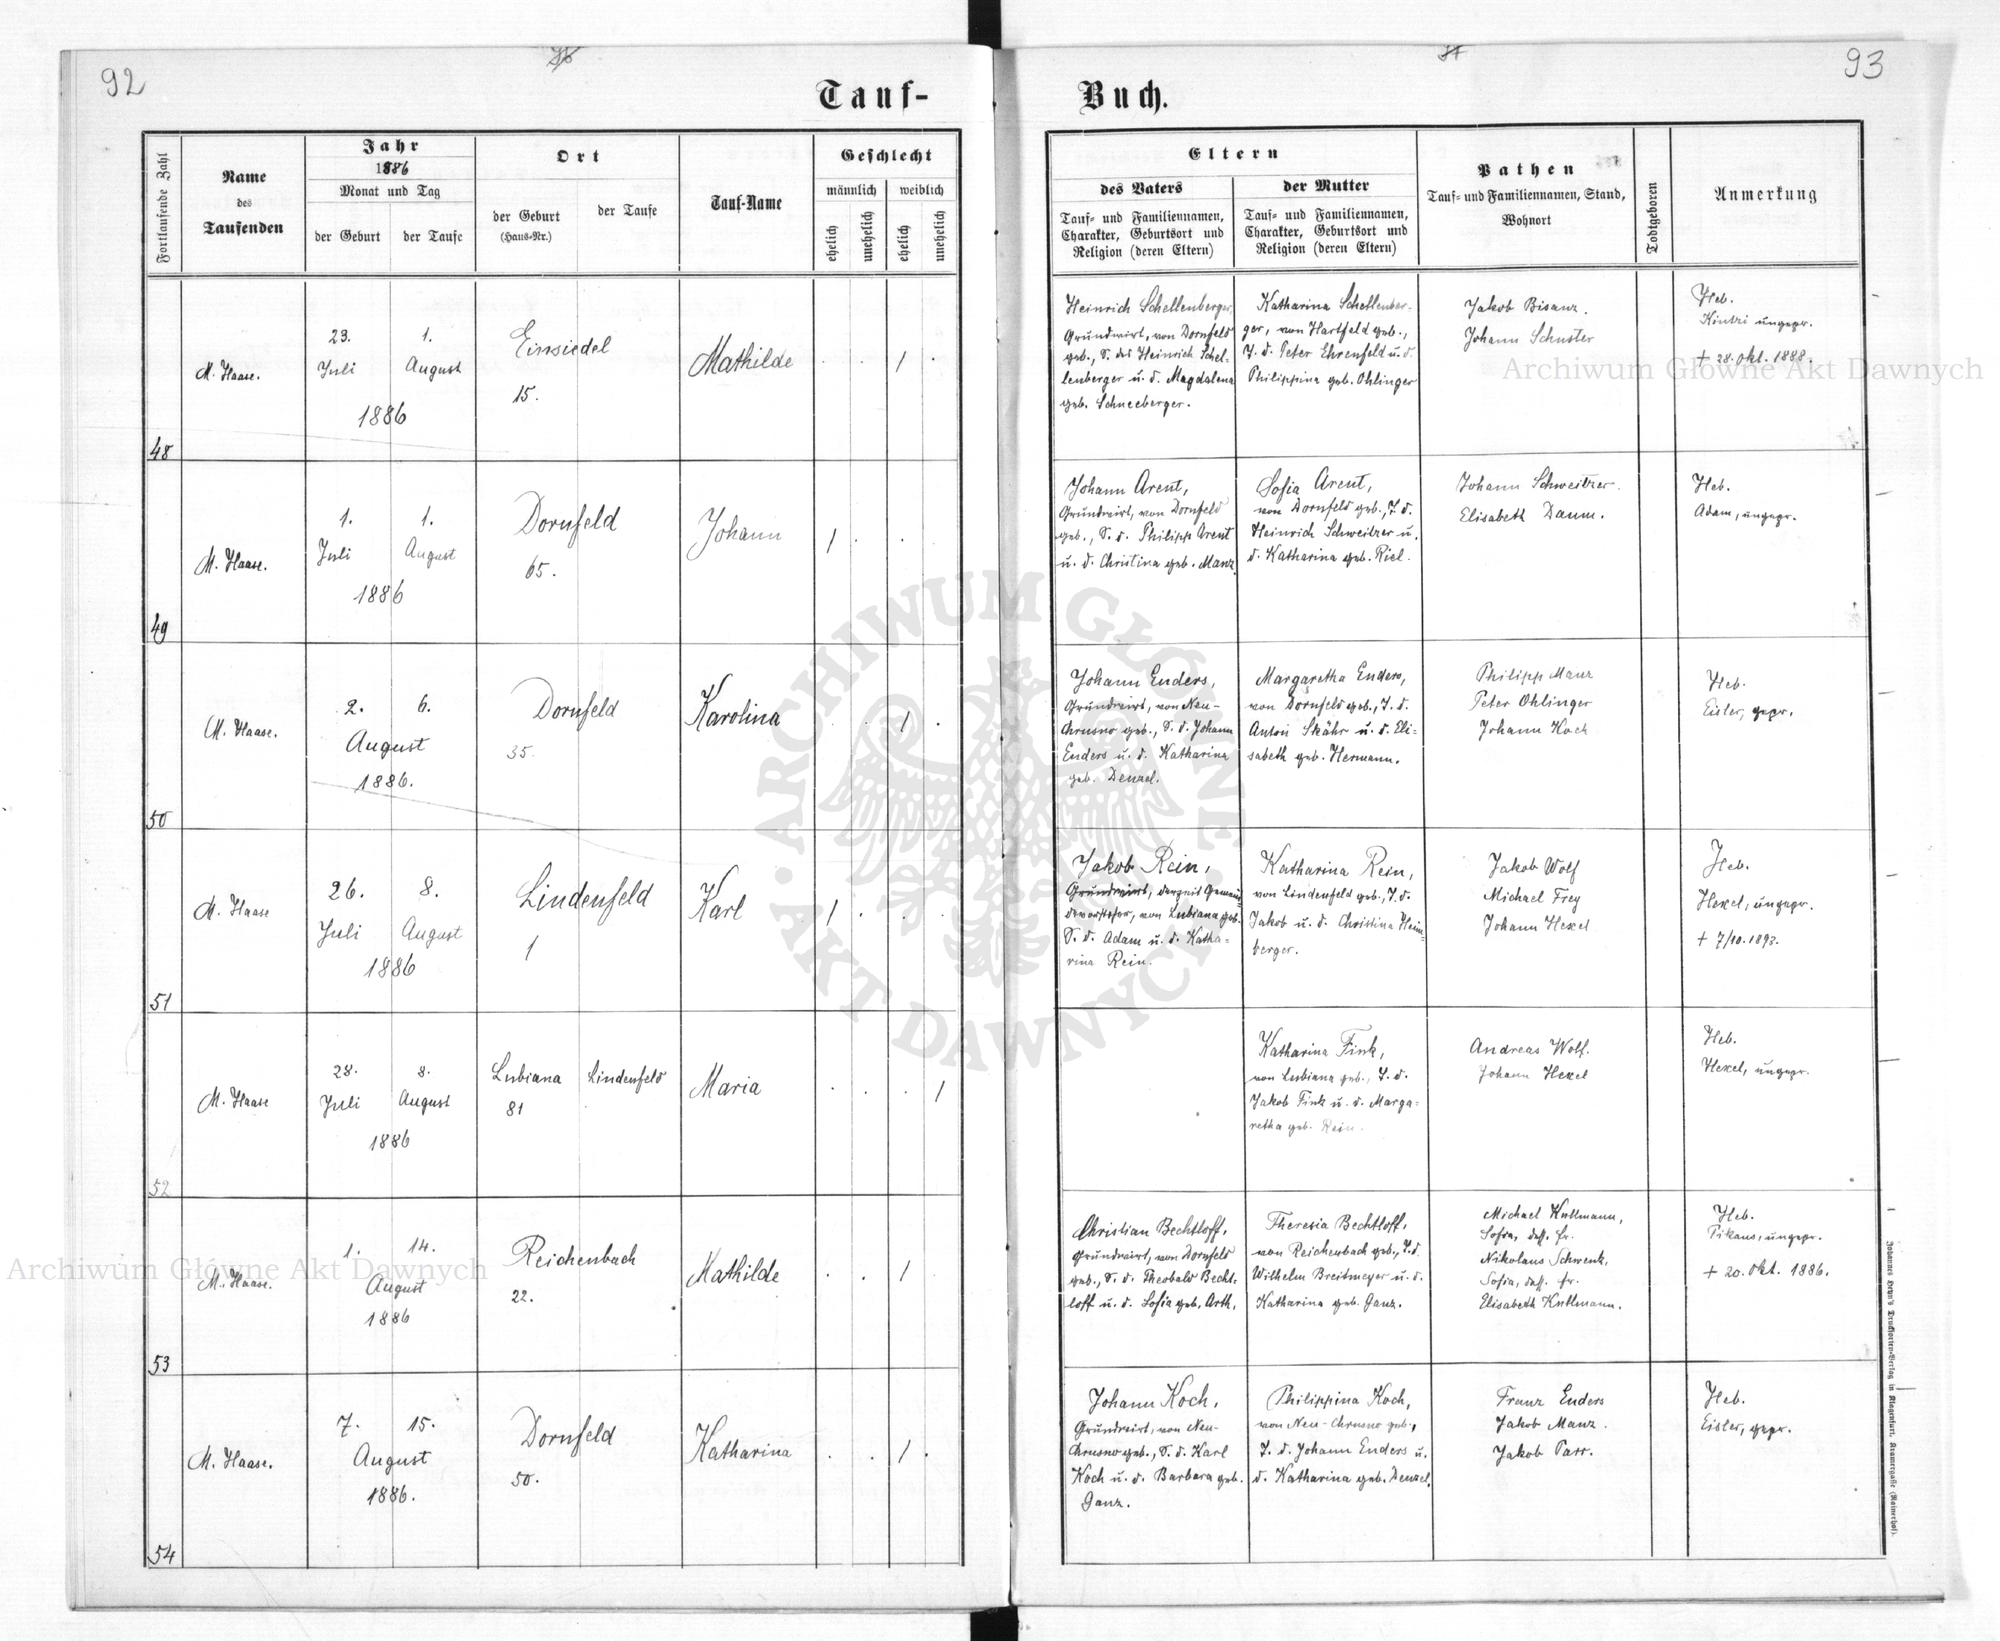 92
93
Tauf-
Buch.
Fortlaufende Zahl
Name
des
Taufenden
Jahr
1886
Monat und Tag
der Geburt
der Taufe
Ort
der Geburt
(Haus-Nr.)
der Taufe
Tauf-Name
Geschlecht
männlich
weiblich
ehelich
unehelich
ehelich
unehelich
Eltern
des Vaters
Tauf- und Familiennamen,
Charakter, Geburtsort und
Religion (deren Eltern)
der Mutter
Tauf- und Familiennamen,
Charakter, Geburtsort und
Religion (deren Eltern)
Pathen
Tauf- und Familiennamen, Stand,
Wohnort
Todtgeboren
Anmerkung
48
M. Haase.
23.
Juli
1.
August
1886
Einsiedel
15.
Mathilde
1
Heinrich Schellenberger,
Grundwirt, von Dornfeld
geb., S. des Heinrich Schel-
lenberger u. d. Magdalena
geb. Schneeberger.
Katharina Schellenber-
ger, von Hartfeld geb.,
T. d. Peter Ehrenfeld u. d.
Philippina geb. Ohlinger
Jakob Bisanz.
Johann Schuster
Heb.
Kintzi ungepr.
+ 28. Okt. 1888.
49
M. Haase.
1.
Juli
1.
August
1886
Dornfeld
65.
Johann
1
Johann Arent,
Grundwirt, von Dornfeld
geb., S. d. Philipp Arent
u. d. Christina geb. Manz.
Sofia Arent,
von Dornfeld geb., T. d.
Heinrich Schweitzer u.
d. Katharina geb. Riel.
Johann Schweitzer.
Elisabeth Daum.
Heb.
Adam, ungepr.
50
M. Haase.
2.
6.
August
1886.
Dornfeld
35.
Karolina
1
Johann Enders,
Grundwirt, von Neu-
Chrusno geb., S. d. Johann
Enders u. d. Katharina
geb. Denzel.
Margaretha Enders,
von Dornfeld geb., T. d.
Anton Skähr u. d. Eli-
sabeth geb. Hermann.
Philipp Manz
Peter Ohlinger
Johann Koch
Heb.
Eisler, gepr.
51
M. Haase
26.
Juli
8.
August
1886
Lindenfeld
1
Karl
1
Jakob Rein,
Grundwirt, derzeit Gemein-
devorsteher, von Lubiana geb.
S. d. Adam u. d. Katha-
rina Rein.
Katharina Rein,
von Lindenfeld geb., T. d.
Jakob u. d. Christina Heim-
berger.
Jakob Wolf
Michael Frey
Johann Hexel
Heb.
Hexel, ungepr.
+ 7/10.1893.
52
M. Haase
28.
Juli
8.
August
1886
Lubiana
81
Lindenfeld
Maria
1
Katharina Fink,
von Lubiana geb., T. d.
Jakob Fink u. d. Marga-
retha geb. Rein.
Andreas Wolf.
Johann Hexel
Heb.
Hexel, ungepr.
53
M. Haase.
1.
14.
August
1886
Reichenbach
22.
Mathilde
1
Christian Bechtloff,
Grundwirt, von Dornfeld
geb., S. d. Theobald Becht-
loff u. d. Sofia geb. Arth.
Theresia Bechtloff,
von Reichenbach geb., T. d.
Wilhelm Breitmeyer u. d.
Katharina geb. Ganz.
Michael Kullmann,
Sofia, dess. Fr.
Nikolaus Schwenk,
Sofia, dess. Fr.
Elisabeth Kullmann.
Heb.
Pikaus, ungepr.
+ 20. Okt. 1886.
54
M. Haase.
7.
15.
August
1886.
Dornfeld
50.
Katharina
1
Johann Koch,
Grundwirt, von Neu-
Chrusno geb., S. d. Karl
Koch u. d. Barbara geb.
Ganz.
Philippina Koch,
von Neu-Chrusno geb.,
T. d. Johann Enders u.
d. Katharina geb. Denzel.
Franz Enders
Jakob Manz.
Jakob Parr.
Heb.
Eisler, gepr.
Johannes Heyn's Drucksorten-Verlag in Klagenfurt, Kramergasse (Rainerhof).
Archiwum Główne Akt Dawnych
Archiwum Główne Akt Dawnych
ARCHIWUM GŁÓWNE
AKT DAWNYCH